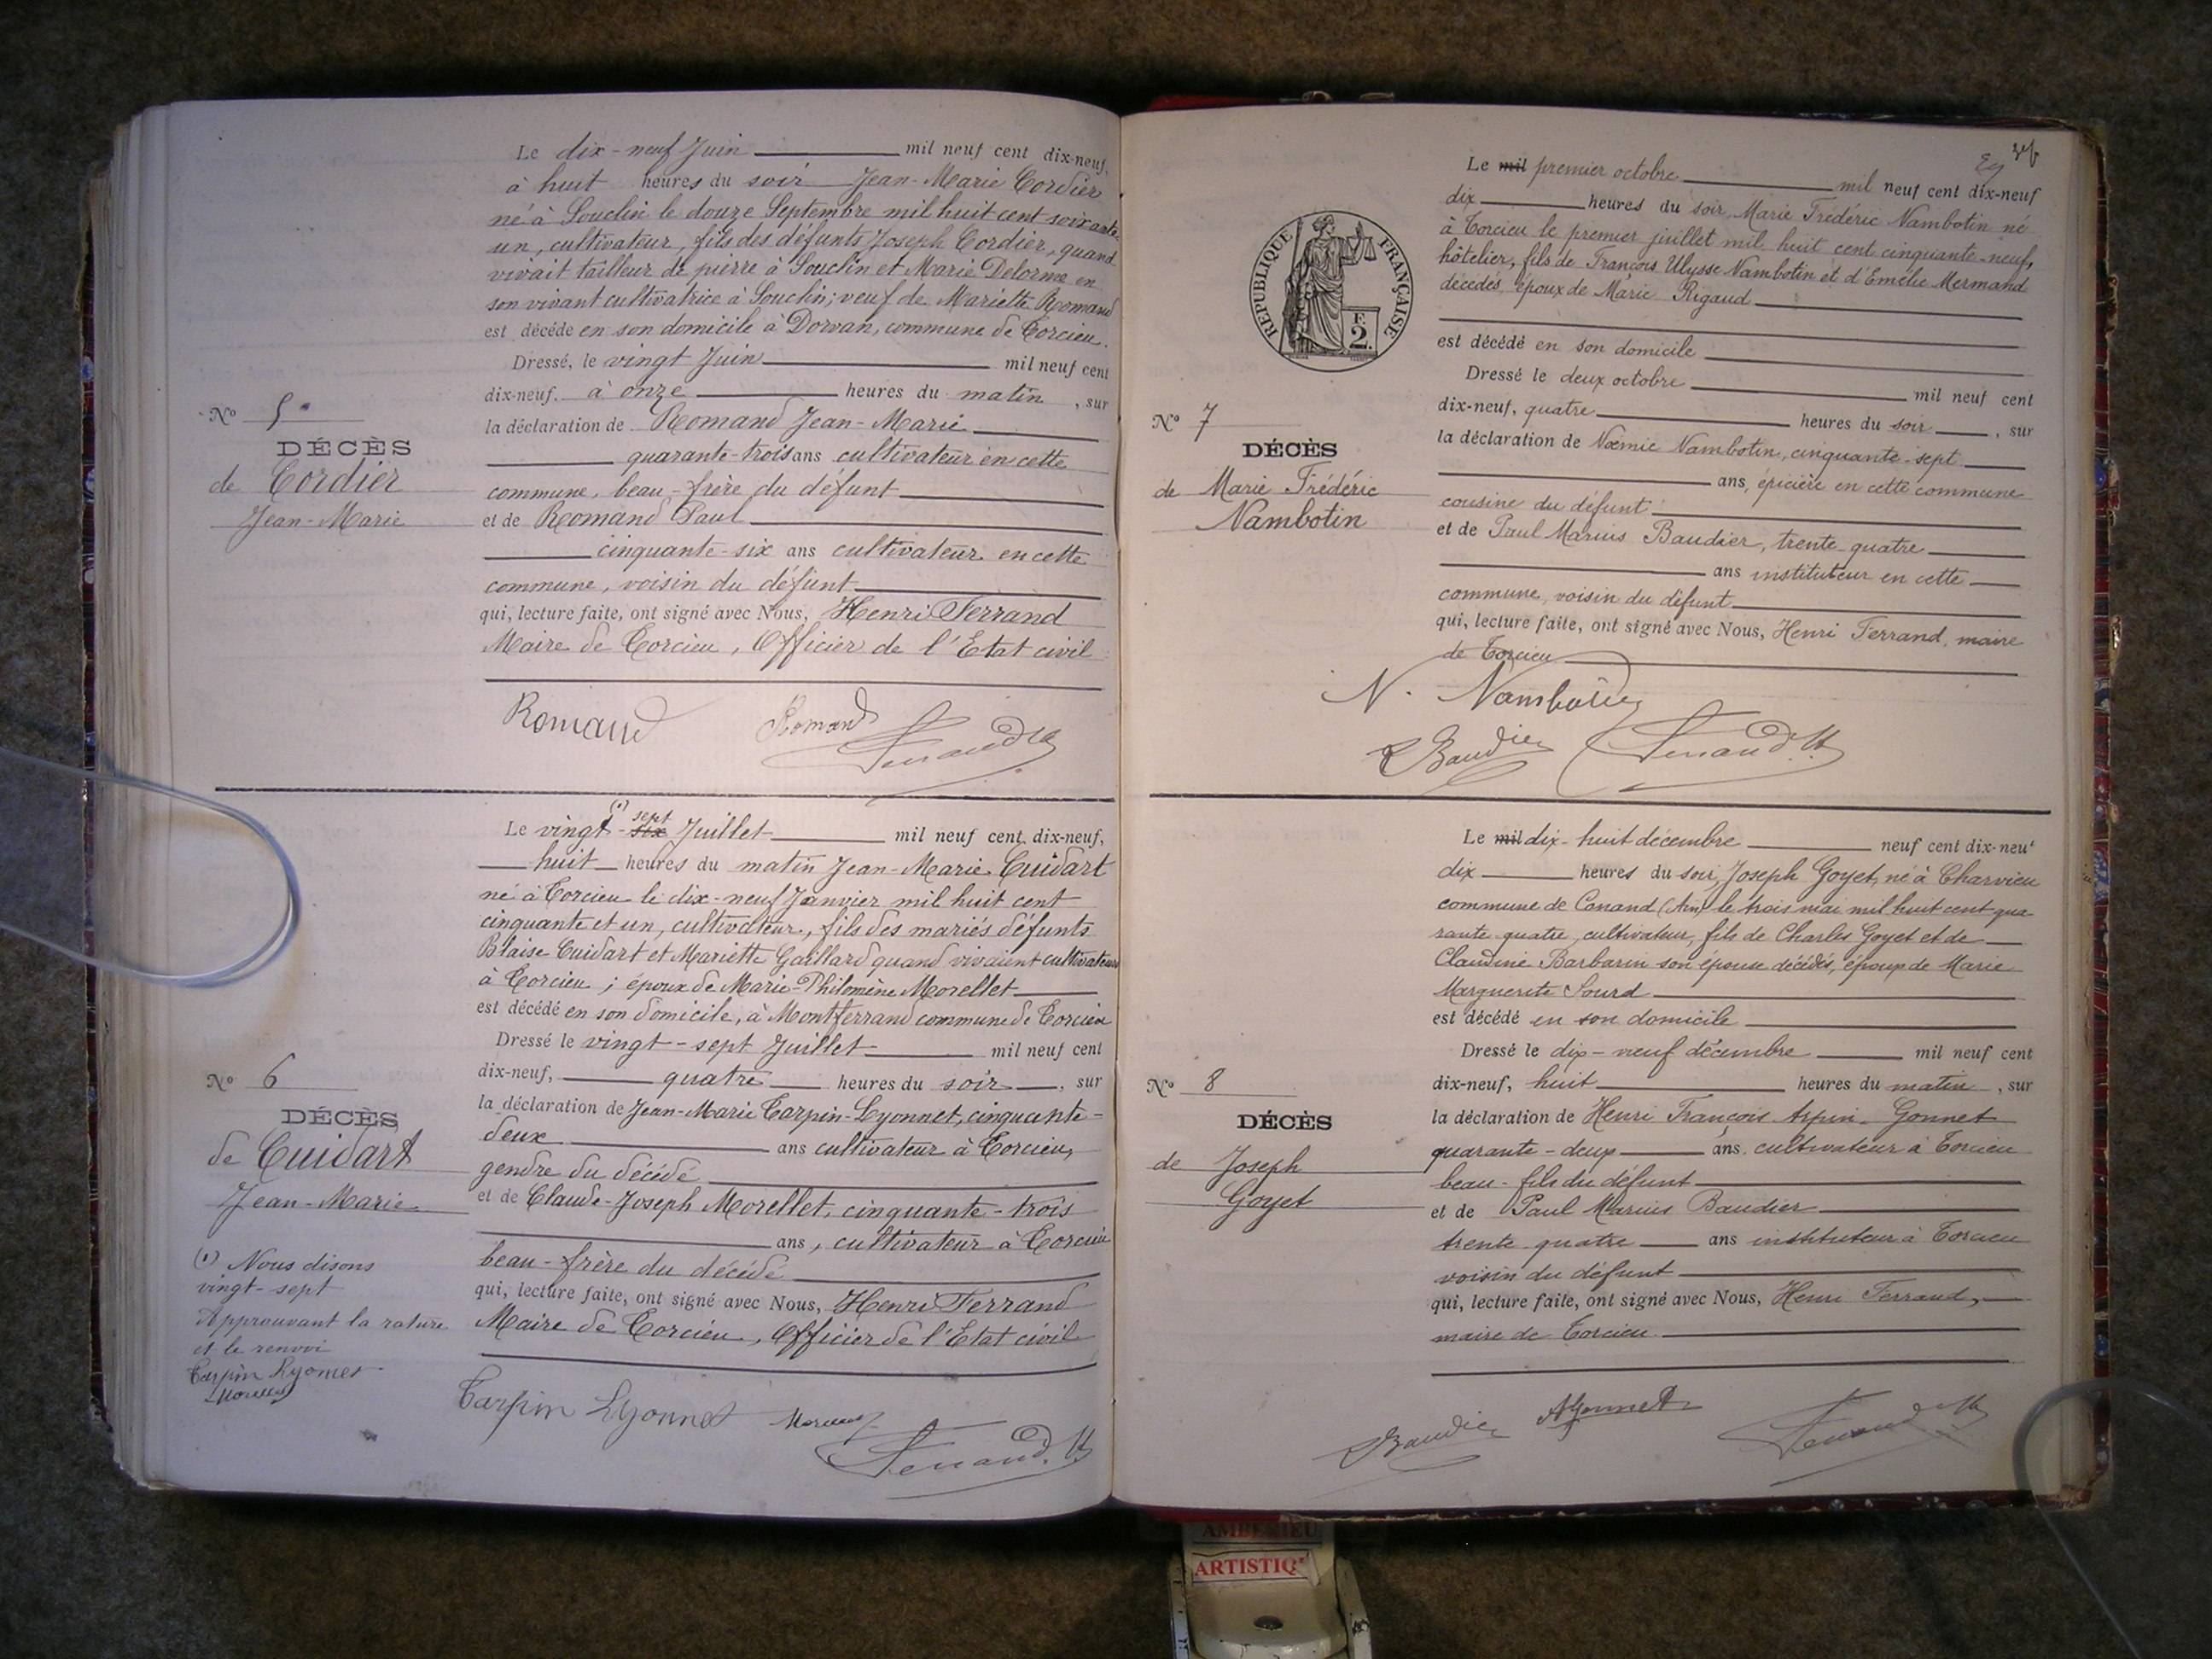 Le dix-neuf Juin mil neuf cent dix-neuf,
à huit heures du soir Jean-Marie Cordier
né à Souclin le douze Septembre mil huit cent soixante-
un, cultivateur, fils des défunts Joseph Cordier, quand
vivait tailleur de pierre à Souclin et Marie Delorme en
son vivant cultivatrice à Souclin; veuf de Mariette Romand
est décédé en son domicile à Dorvan, commune de Torcieu.
Dressé, le vingt Juin mil neuf cent
dix-neuf. à onze heures du matin, sur
la déclaration de Romand Jean-Marie
quarante-trois ans cultivateur en cette
commune, beau-frère du défunt
et de Romand Paul
cinquante-six ans cultivateur en cette
commune, voisin du défunt
qui, lecture faite, ont signé avec Nous, Henri Ferrand
Maire de Torcieu, Officier de l'Etat civil
Nº 5
DÉCÈS
de Cordier
Jean-Marie
Romand Romand
Ferrand H
Le vingt-six (1) sept Juillet mil neuf cent dix-neuf,
huit heures du matin Jean-Marie Cuidart
né à Torcieu le dix-neuf Janvier mil huit cent
cinquante et un, cultivateur, fils des mariés défunts
Blaise Cuidart et Mariette Gaillard quand vivaient cultivateurs
à Torcieu; époux de Marie-Philomène Morellet
est décédé en son domicile, à Montferrand commune de Torcieu
Dressé le vingt-sept Juillet mil neuf cent
dix-neuf, quatre heures du soir, sur
la déclaration de Jean-Marie Tarpin-Lyonnet, cinquante-
deux ans cultivateur à Torcieu,
gendre du décédé
et de Claude-Joseph Morellet, cinquante-trois
ans, cultivateur à Torcieu
beau-frère du décédé
qui, lecture faite, ont signé avec Nous, Henri Ferrand
Maire de Torcieu, Officier de l'Etat civil
Nº 6
DÉCÈS
de Cuidart
Jean-Marie
(1) Nous disons
vingt-sept
Approuvant la rature
et le renvoi
Tarpin Lyonnet
Morellet
Tarpin Lyonnet Morellet
Ferrand. H
Le mil premier octobre mil neuf cent dix-neuf
dix heures du soir, Marie Frédéric Nambotin né
à Torcieu le premier juillet mil huit cent cinquante-neuf,
hôtelier, fils de François Ulysse Nambotin et d'Emélie Mermand
décédés, époux de Marie Rigaud
est décédé en son domicile
Dressé le deux octobre mil neuf cent
dix-neuf, quatre heures du soir, sur
la déclaration de Noemie Nambotin, cinquante-sept
ans, épicière en cette commune
cousine du défunt
et de Paul Marius Baudier, trente-quatre
ans instituteur en cette
commune, voisin du défunt
qui, lecture faite, ont signé avec Nous, Henri Ferrand, maire
de Torcieu
RÉPUBLIQUE FRANÇAISE
F.
2.
Nº 7
DÉCÈS
de Marie Frédéric
Nambotin
N. Nambotin
Baudier Ferrand H
Le mil dix-huit décembre neuf cent dix-neuf
dix heures du soir, Joseph Goyet, né à Charvieu
commune de Conand (Ain) le trois mai mil huit cent qua
rante quatre, cultivateur, fils de Charles Goyet et de
Claudine Barbarin son épouse décédés, époux de Marie
Marguerite Sourd
est décédé en son domicile
Dressé le dix-neuf décembre mil neuf cent
dix-neuf, huit heures du matin, sur
la déclaration de Henri François Arpin-Gonnet
quarante-deux ans, cultivateur à Torcieu
beau-fils du défunt
et de Paul Marius Baudier
trente-quatre ans instituteur à Torcieu
voisin du défunt
qui, lecture faite, ont signé avec Nous, Henri Ferrand,
maire de Torcieu
Nº 8
DÉCÈS
de Joseph
Goyet
Baudier AGonnet Ferrand H
AMBERIEU
ARTISTIQ